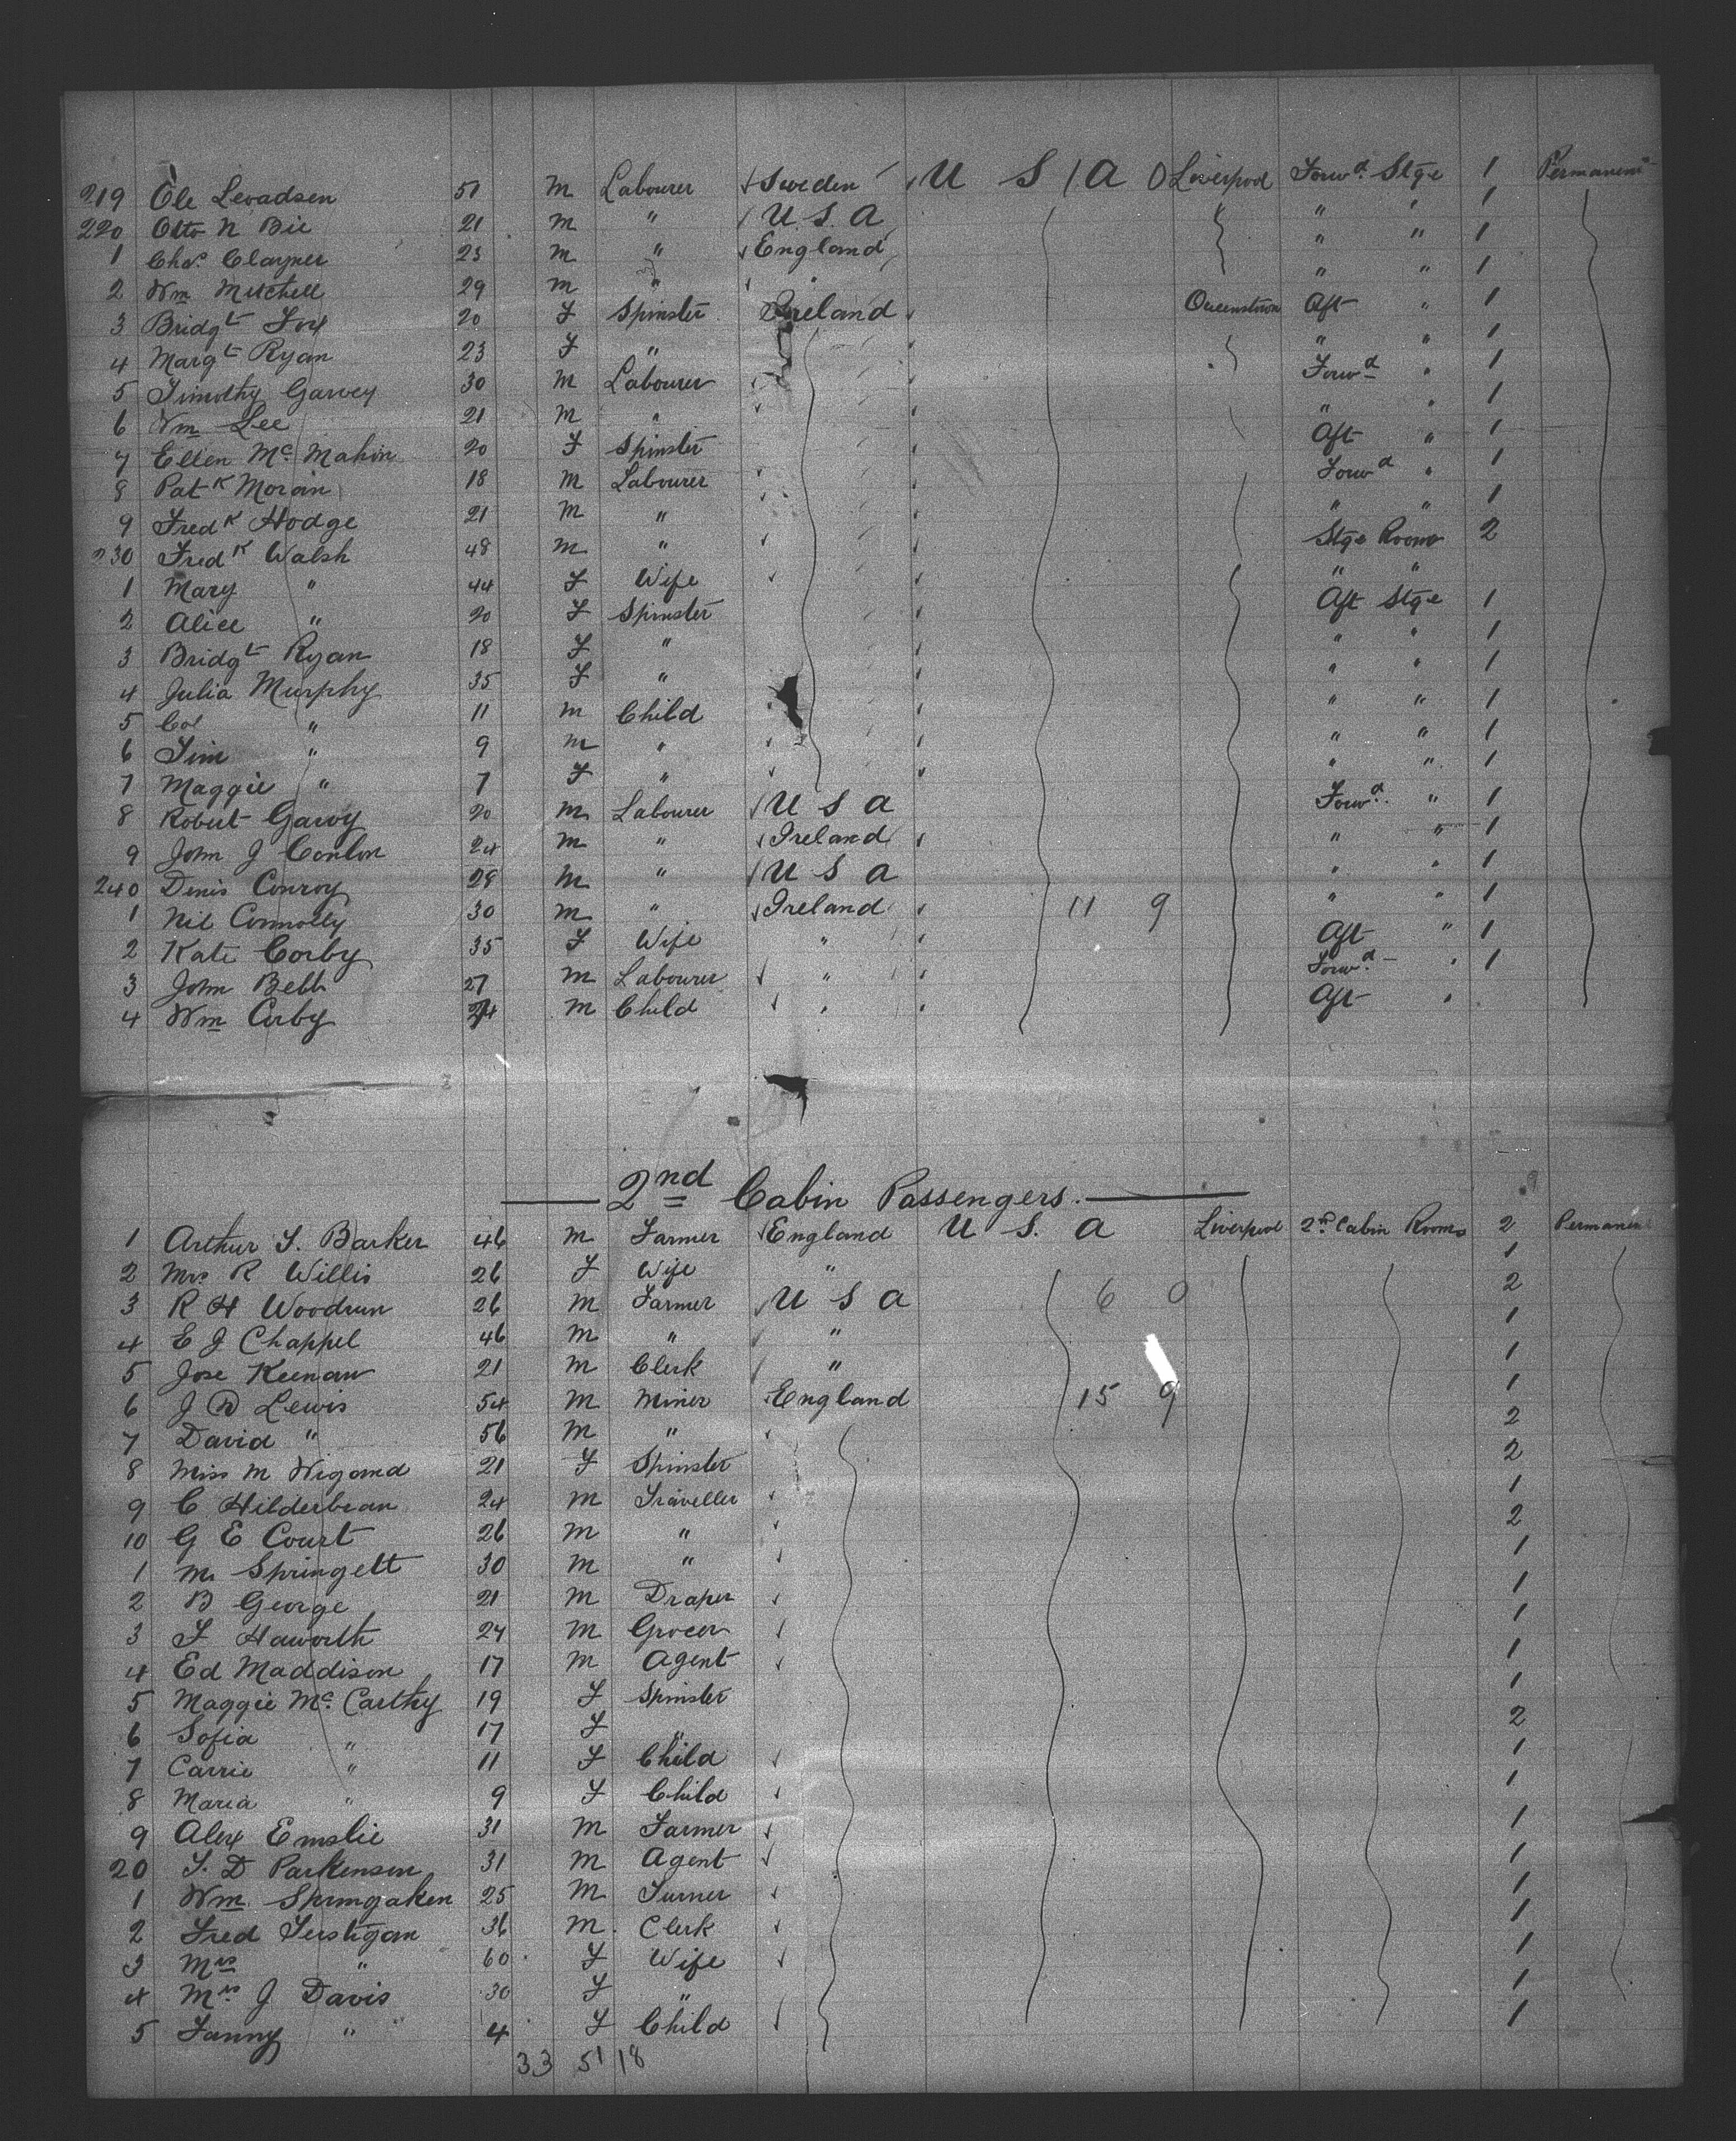 219 Ole Levadsen 51 m Labourer Sweden U S A Liverpool Forwd Stge 1 Permanent
220 Otto N Bie 21 m " U. S. A " " 1
1 Chas. Clayner 23 m " England " " 1
2 Wm Mitchell 29 m " " " " 1
3 Bridgt Fox 20 F Spinster Ireland Queenstown Aft " 1
4 Margt Ryan 23 F " " " 1
5 Timothy Garvey 30 m Labourer Forwd " 1
6 Wm Lee 21 m " " " 1
7 Ellen Mc Mahin 20 F Spinster Aft " 1
8 Patk Moran 18 m Labourer Forwd " 1
9 Fredk Hodge 21 m " " " 1
230 Fredk Walsh 48 m " Stge Room 2
1 Mary " 44 F Wife " "
2 Alice " 20 F Spinster Aft Stge 1
3 Bridgt Ryan 18 F " " " 1
4 Julia Murphy 35 F " " " 1
5 " 11 m Child " " 1
6 Tim " 9 m " " " 1
7 Maggie " 7 F " " " 1
8 Robert Garvy 20 m Labourer U S A Forwd. " 1
9 John J Conlon 24 m " Ireland " " 1
240 Denis Conroy 28 m " U S A " " 1
1 Nil Connolly 30 m " Ireland 11 9 " " 1
2 Kate Corby 35 F Wife " Aft " 1
3 John Bebb 27 m Labourer " Forwd. " 1
4 Wm Corby m Child " Aft "
2nd Cabin Passengers.
1 Arthur T. Barker 46 m Farmer England U S. A Liverpool 2nd Cabin Rooms 2 Permanent
2 Mrs R Willis 26 F Wife " 1
3 R H Woodrun 26 m Farmer U S A 6 0 2
4 E J Chappel 46 m " " 1
5 Jose Keenaw 21 m Clerk " 1
6 J D Lewis 54 m Miner England 15 9 1
7 David " 56 m " 2
8 Miss M Wigand 21 F Spinster 2
9 C Hilderbran 24 m Traveller 1
10 G E Court 26 m " 2
1 Mr Springett 30 m " 1
2 B George 21 m Draper 1
3 F Haworth 24 m Grocer 1
4 Ed Maddison 17 m Agent 1
5 Maggie Mc. Carthy 19 F Spinster 1
6 Sofia " 17 F " 2
7 Carrie " 11 F Child 1
8 Maria " 9 F Child 1
9 Alex Emslie 31 m Farmer 1
20 T. D Parkenson 31 m Agent 1
1 Wm Springaken 25 m Turner 1
2 Fred Terstigan 36 m. Clerk 1
3 Mrs " 60 F Wife 1
4 Mrs J Davis 30 F " 1
5 Fanny " 4 F Child 1
33 51 18